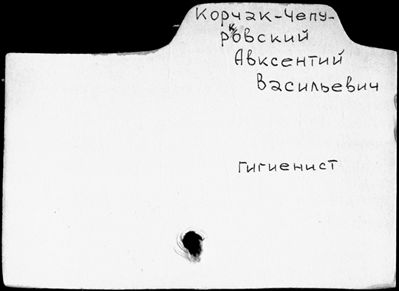 Корчак-Чепу-
рковский
Авксентий
Васильевич
гигиенист